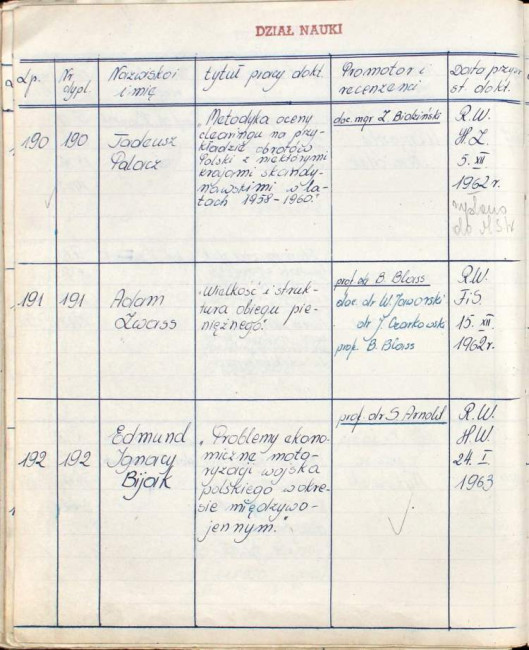 DZIAŁ NAUKI
Lp. Nr dypl. Nazwisko i imię tytuł pracy dokt. Promotor i recenzenci Data przyzn. st. dokt.
190 190 Tadeusz
Palacz
„Metodyka oceny
clearingu na przy-
kładzie obrotów
Polski z niektórymi
krajami skandy-
nawskimi w la-
tach 1958-1960."
doc. mgr Z. Bidziński
R.W.
H.Z.
5. XII
1962 r.
do MSW
191 191 Adam
Zwass
„Wielkość i struk-
tura obiegu pie-
niężnego".
prof. dr B. Blass
doc. dr W. Jaworski
dr J. Czarkowski
prof. B. Blass
R.W.
FiS
15. XII.
1962 r.
192 192 Edmund
Ignacy
Bijak
„Problemy ekono-
miczne moto-
ryzacji wojska
polskiego w okre-
sie międzywo-
jennym."
prof. dr S. Arnold
R.W.
H.W.
24. I.
1963